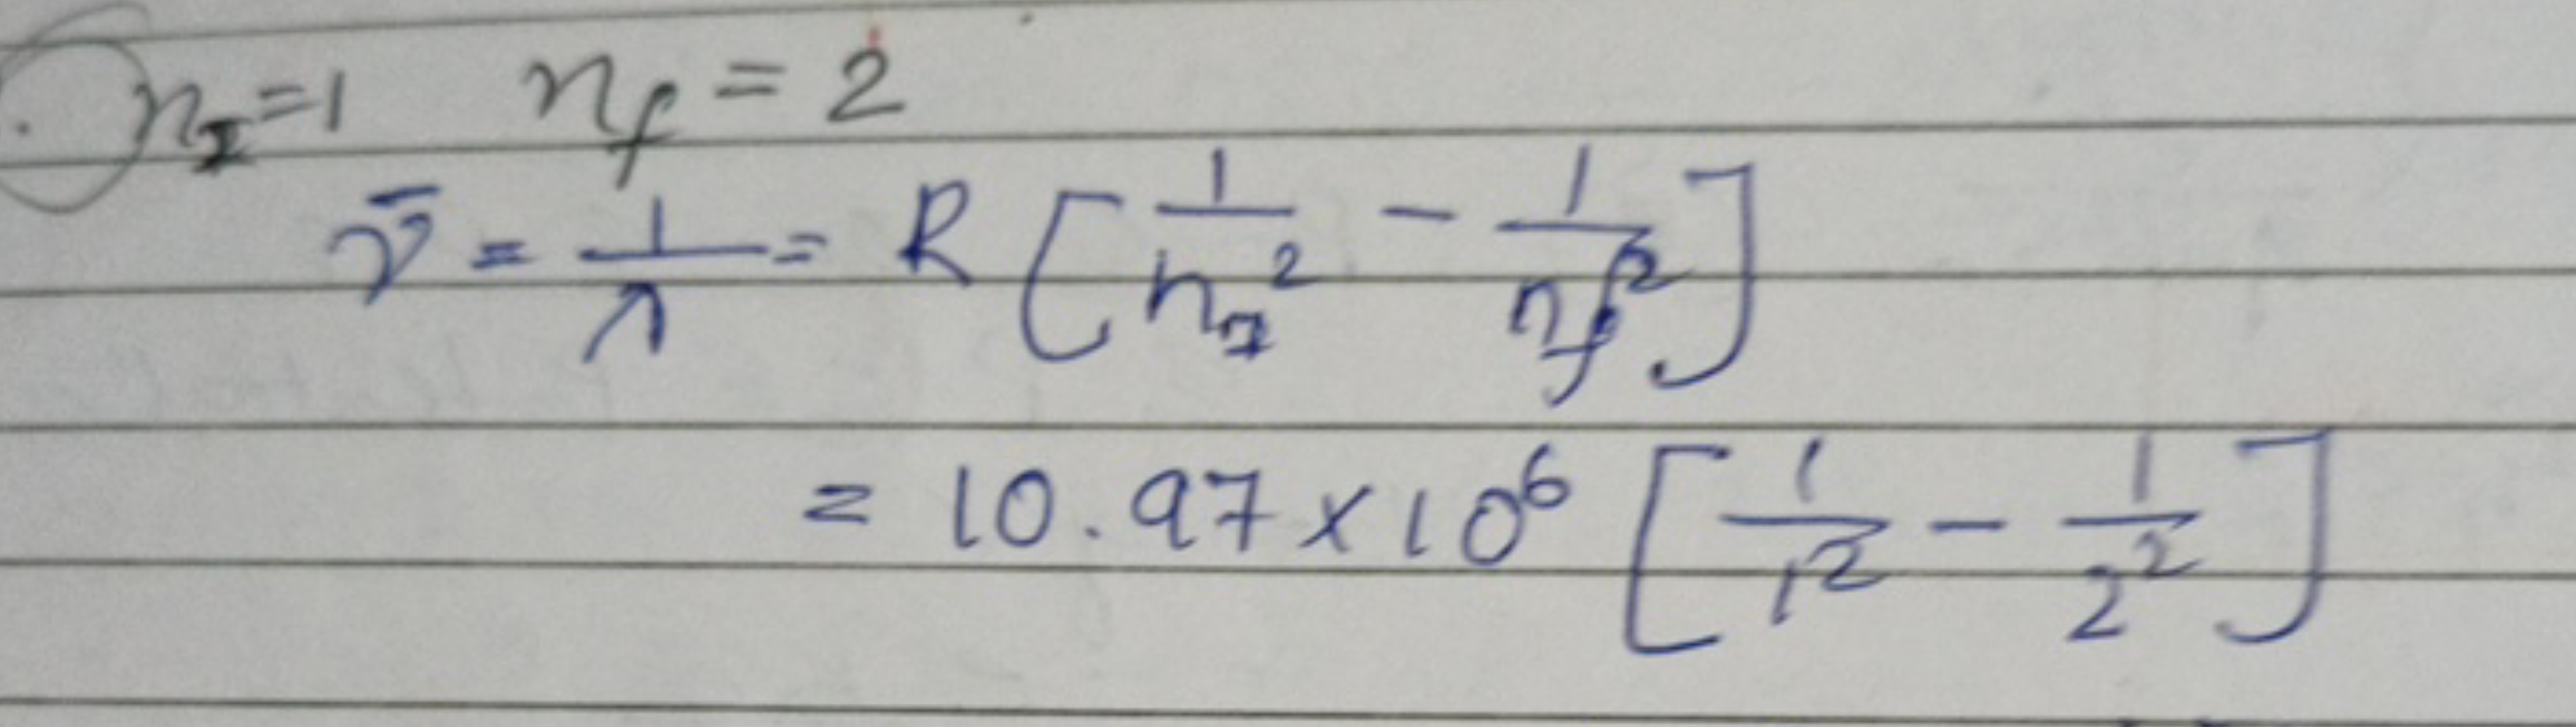 . n_I = 1 n_f = 2
ν̄ = 1/λ = R [1/n_I² - 1/n_f²]
= 10.97 × 10⁶ [1/1² - 1/2²]